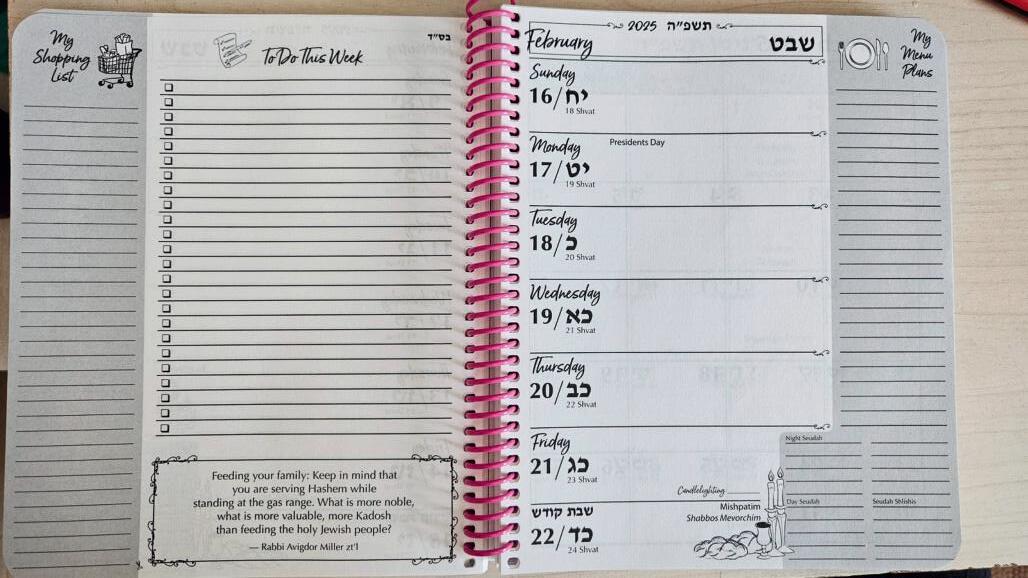 My
Shopping
List
בס״ד
To Do This Week
Feeding your family: Keep in mind that
you are serving Hashem while
standing at the gas range. What is more noble,
what is more valuable, more Kadosh
than feeding the holy Jewish people?
— Rabbi Avigdor Miller zt'l
2025 תשפ״ה
February
שבט
Sunday
16/יח
18 Shvat
Monday
Presidents Day
17/יט
19 Shvat
Tuesday
18/כ
20 Shvat
Wednesday
19/כא
21 Shvat
Thursday
20/כב
22 Shvat
Friday
21/כג
23 Shvat
Candlelighting
שבת קודש
Mishpatim
Shabbos Mevorchim
22/כד
24 Shvat
My
Menu
Plans
Night Seudah
Day Seudah
Seudah Shlishis